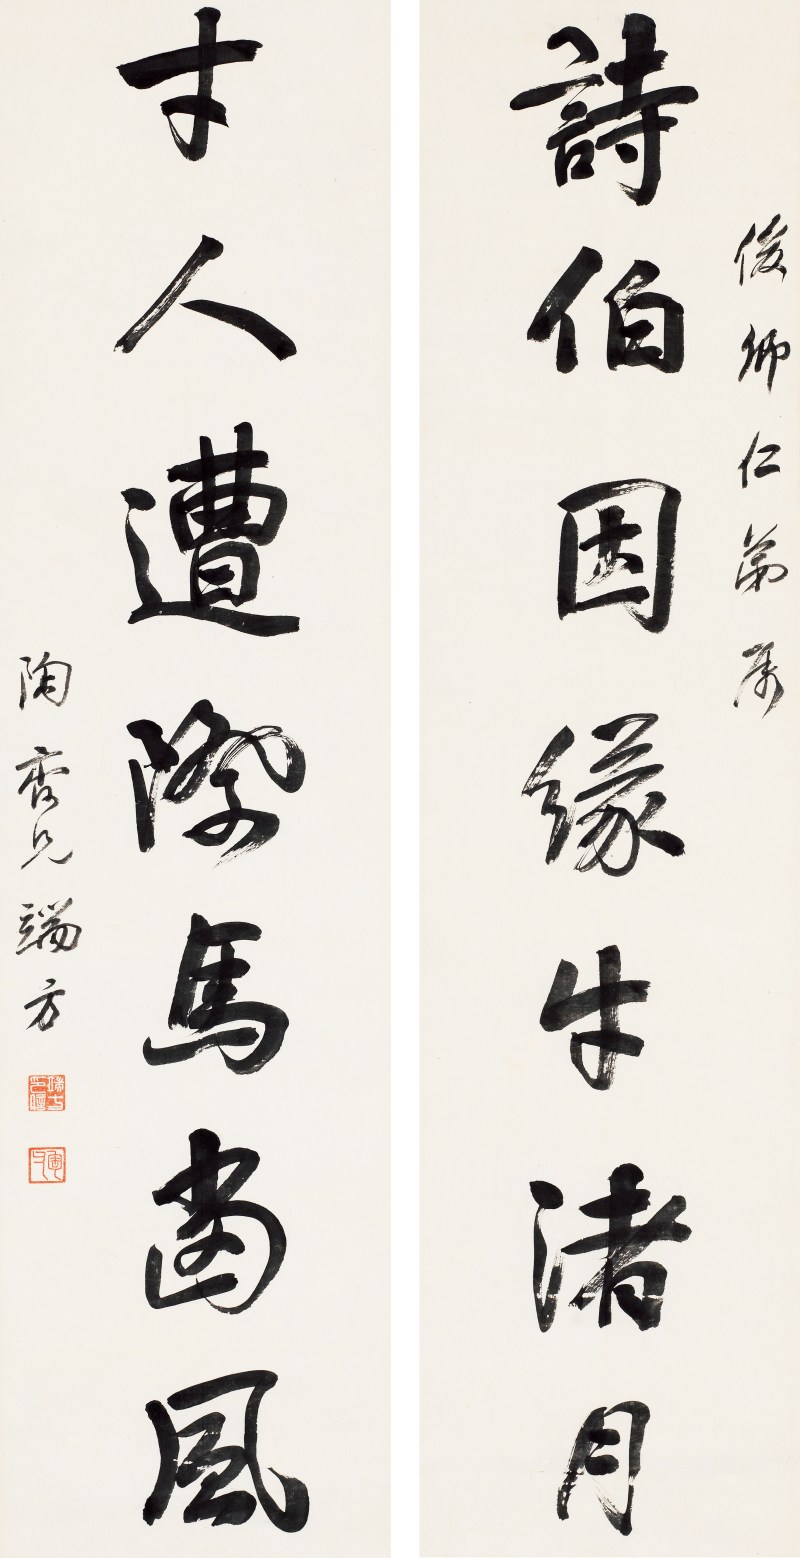 俊卿仁弟屬
詩伯因緣牛渚月
才人遭際馬當風
陶齋兄端方